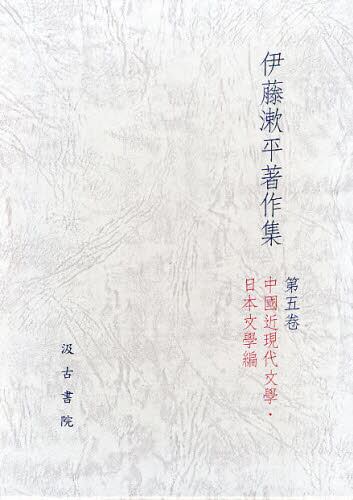 伊藤漱平著作集
第五卷
中國近現代文學・
日本文學編
汲古書院